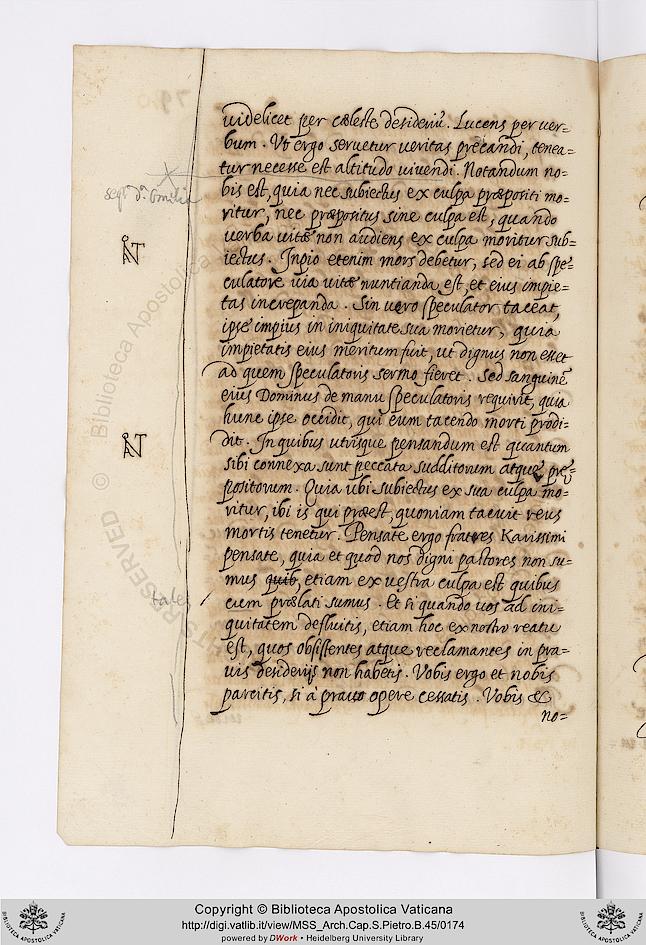 uidelicet per cæleste desideriũ. Lucens per ver=
bum. Vt ergo seruetur ueritas precandi, tenea=
tur necesse est altitudo uiuendi. Notandum no=
bis est, quia nec subiectus ex culpa præpositi mo=
ritur, nec præpositus sine culpa est, quando
uerba uitæ non audiens ex culpa moritur sub=
iectus. Inpio etenim mors debetur, sed ei ab spe=
culatore uia uitæ nuntianda est, et eius impie=
tas increpanda. Sin uero speculator taceat,
ipse impius in iniquitate sua morietur, quia
impietatis eius meritum fuit, ut dignus non esset
ad quem speculatoris sermo fieret. Sed sanguinẽ
eius Dominus de manu speculatoris requirit, quia
hunc ipse occidit, qui eum tacendo morti prodi=
dit. In quibus utrisque pensandum est quantum
sibi connexa sunt peccata sudditorum atque pre=
positorum. Quia ubi subiectus ex sua culpa mo=
ritur, ibi is qui præest, quoniam tacuit reus
mortis tenetur. Pensate ergo fratres Karissimi
pensate, quia et quod nos digni pastores non su=
mus quib, etiam ex uestra culpa est quibus
tales
cum prælati sumus. Et si quando uos ad ini=
quitatem defluitis, etiam hoc ex nostro reatu
est, quos obsistentes atque reclamantes in pra=
uis desiderijs non habetis. Vobis ergo et nobis
parcitis, si à prauo opere cessatis. Vobis &
no=
Copyright © Biblioteca Apostolica Vaticana
http://digi.vatlib.it/view/MSS_Arch.Cap.S.Pietro.B.45/0174
powered by DWork • Heidelberg University Library